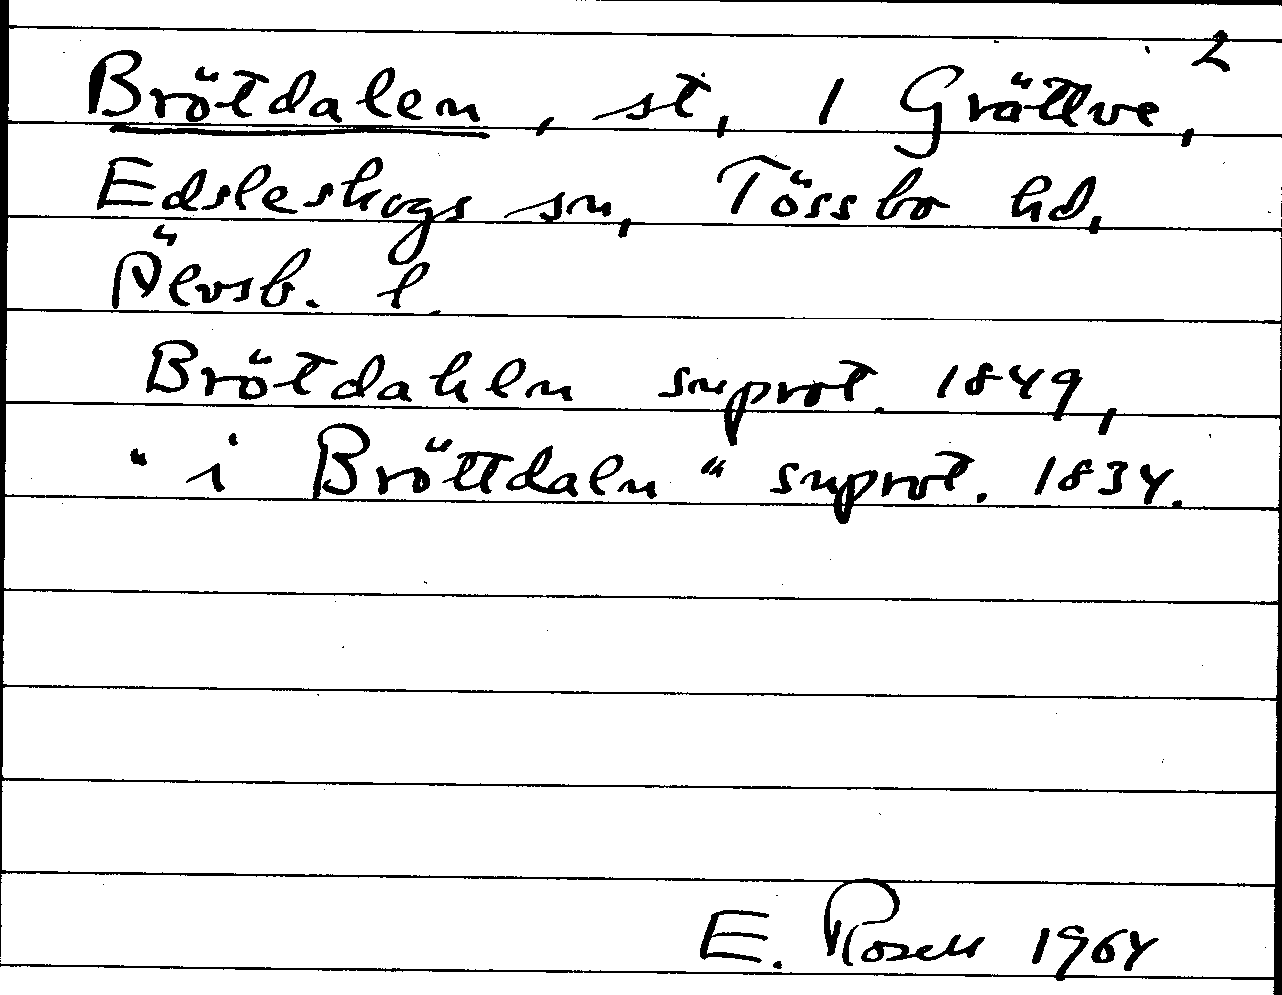 2
Brötdalen, st, 1 Gröttve,
Edsleskogs sn, Tössbo hd,
Älvsb. l.
Brötdahln snprot. 1849,
"i Bröttdaln" snprot. 1834.
E. Rosell 1964